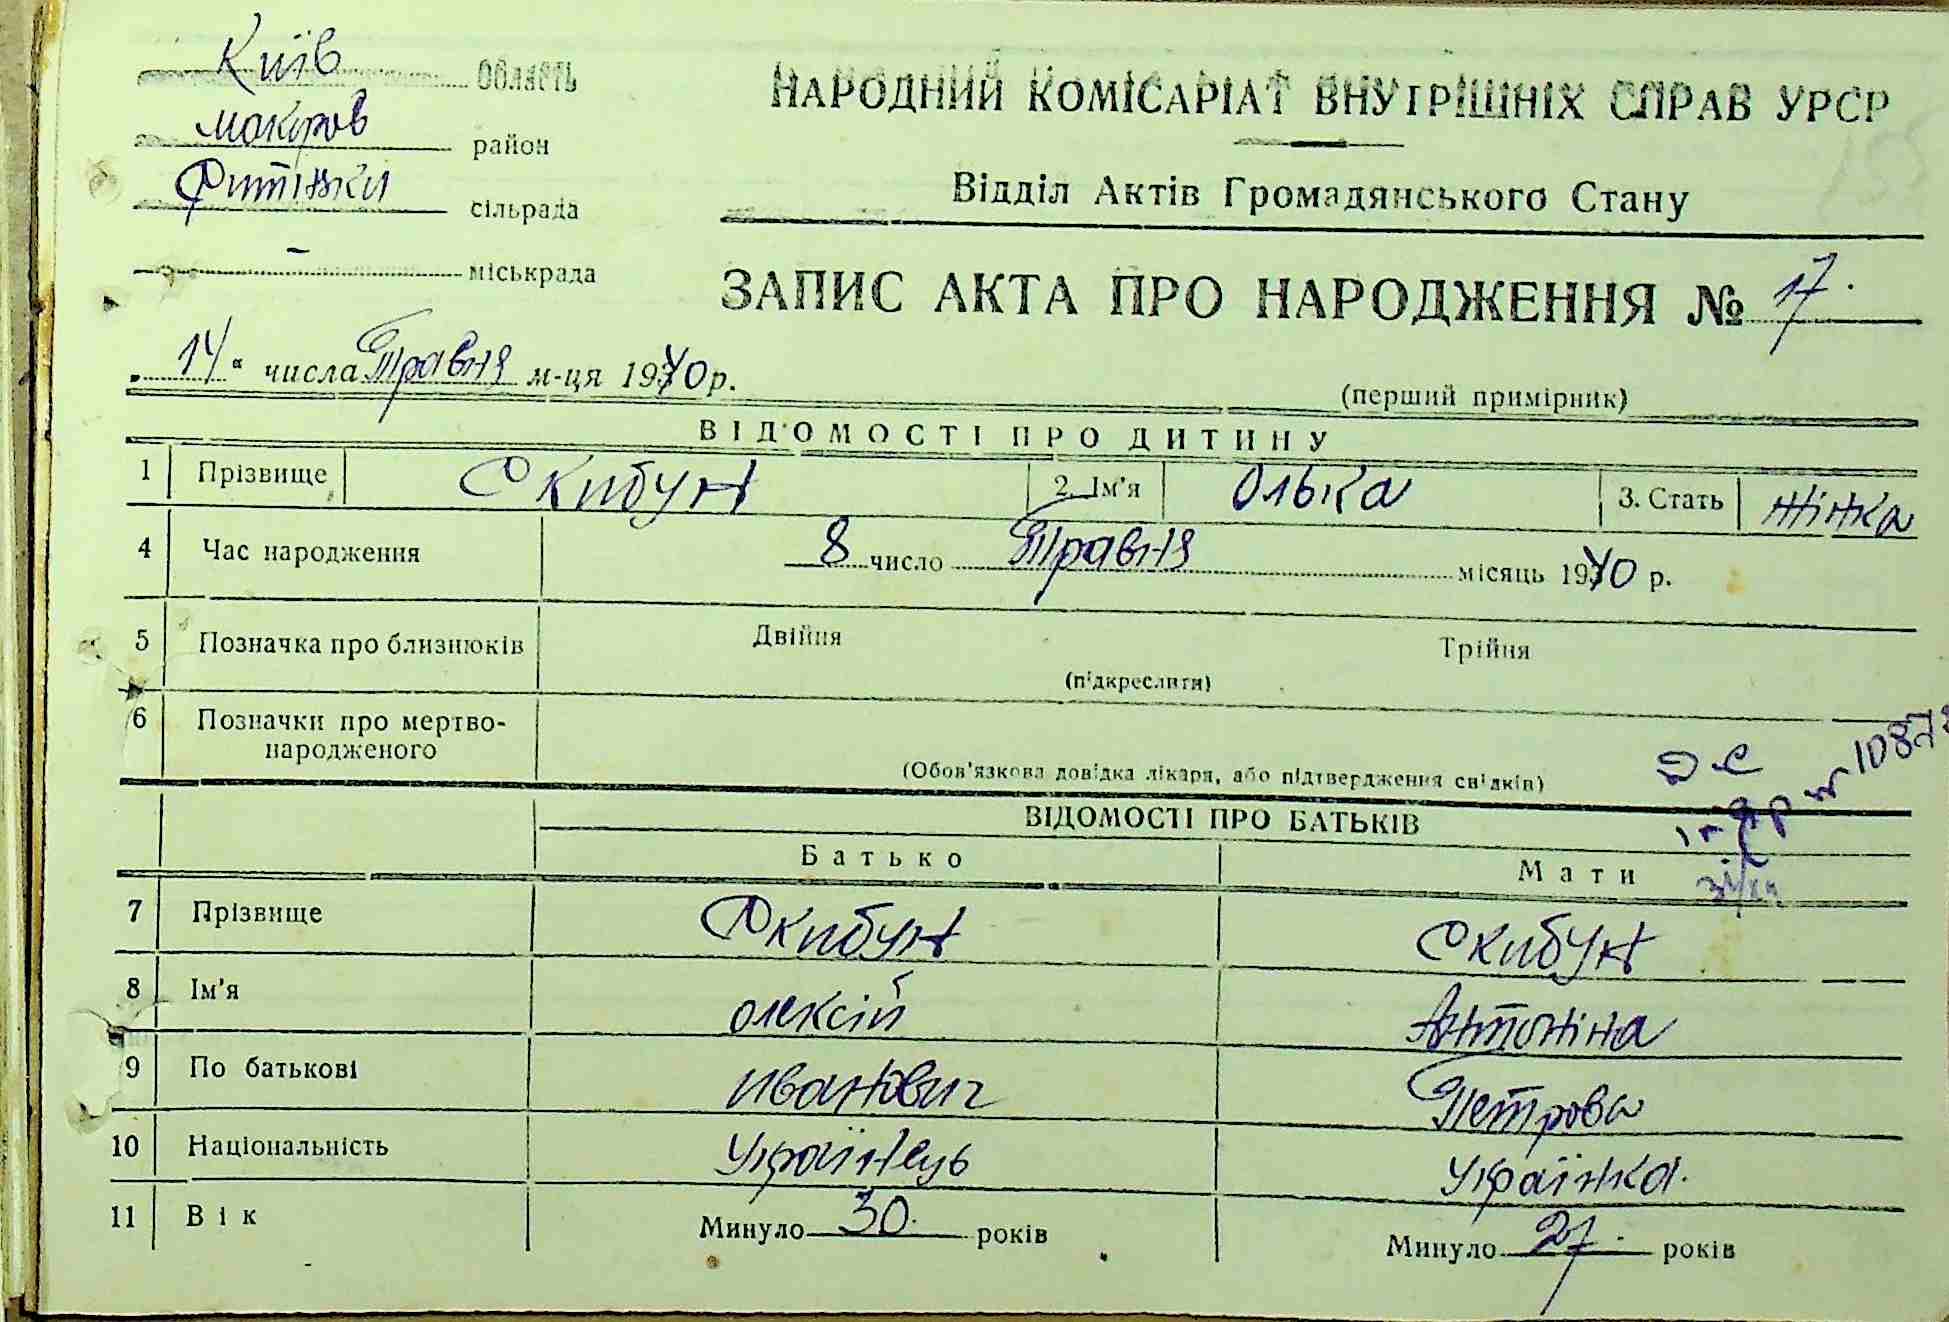 Київ область
макров район
Ситняки сільрада
- міськрада
НАРОДНИЙ КОМІСАРІАТ ВНУТРІШНІХ СПРАВ УРСР
Відділ Актів Громадянського Стану
ЗАПИС АКТА ПРО НАРОДЖЕННЯ № 17.
„14“ числа Травня м-ця 1940 р.
(перший примірник)
ВІДОМОСТІ ПРО ДИТИНУ
1 Прізвище Скибун 2. Ім'я Олька 3. Стать жінка
4 Час народження 8 число Травня місяць 1940 р.
5 Позначка про близнюків Двійня Трійня
(підкреслити)
6 Позначки про мертво-
народженого
(Обов'язкова довідка лікаря, або підтвердження свідків)
ВІДОМОСТІ ПРО БАТЬКІВ
Батько Мати
7 Прізвище Скибун Скибун
8 Ім'я олексій Антоніна
9 По батькові иванович Петрова
10 Національність Українець Українка.
11 Вік Минуло 30. років Минуло 27. років